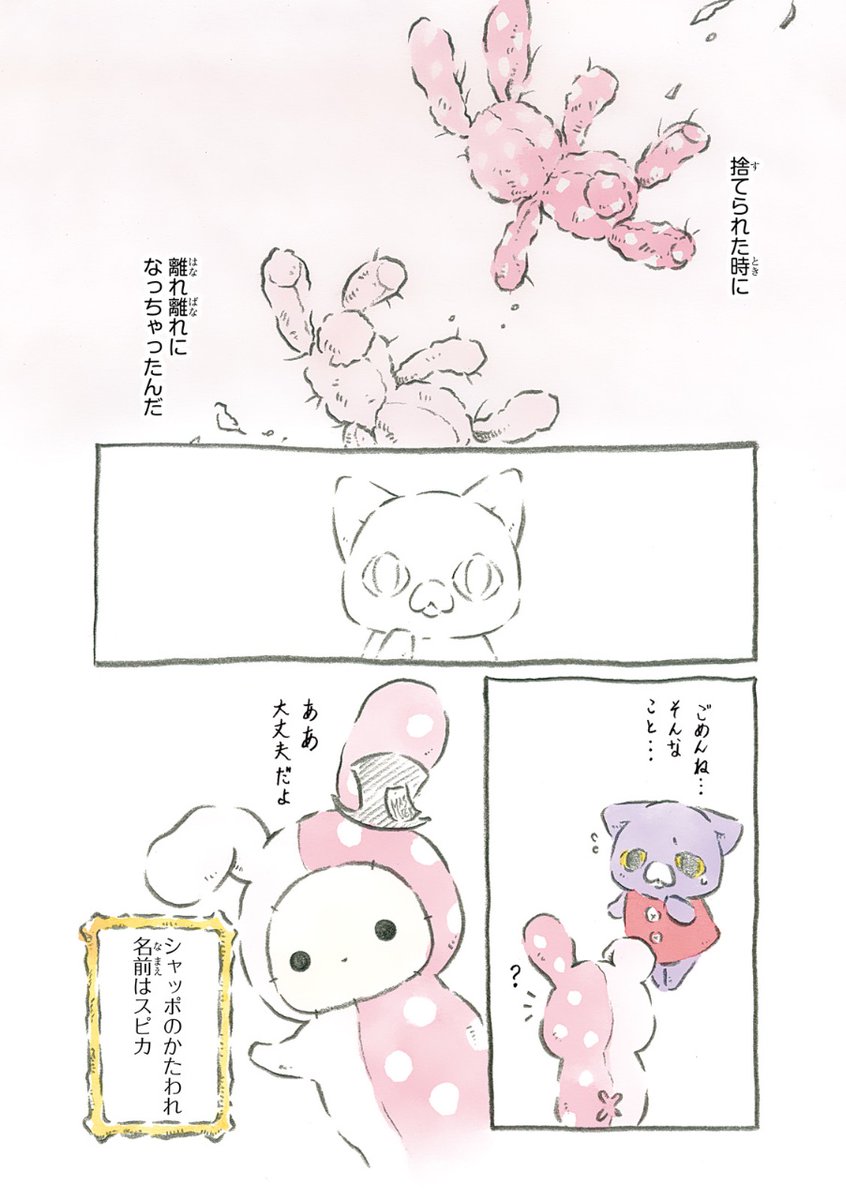 捨てられた時に
離れ離れに
なっちゃったんだ
ごめんね…
そんな
こと…
?
ああ
大丈夫だよ
シャッポのかたわれ
名前はスピカ